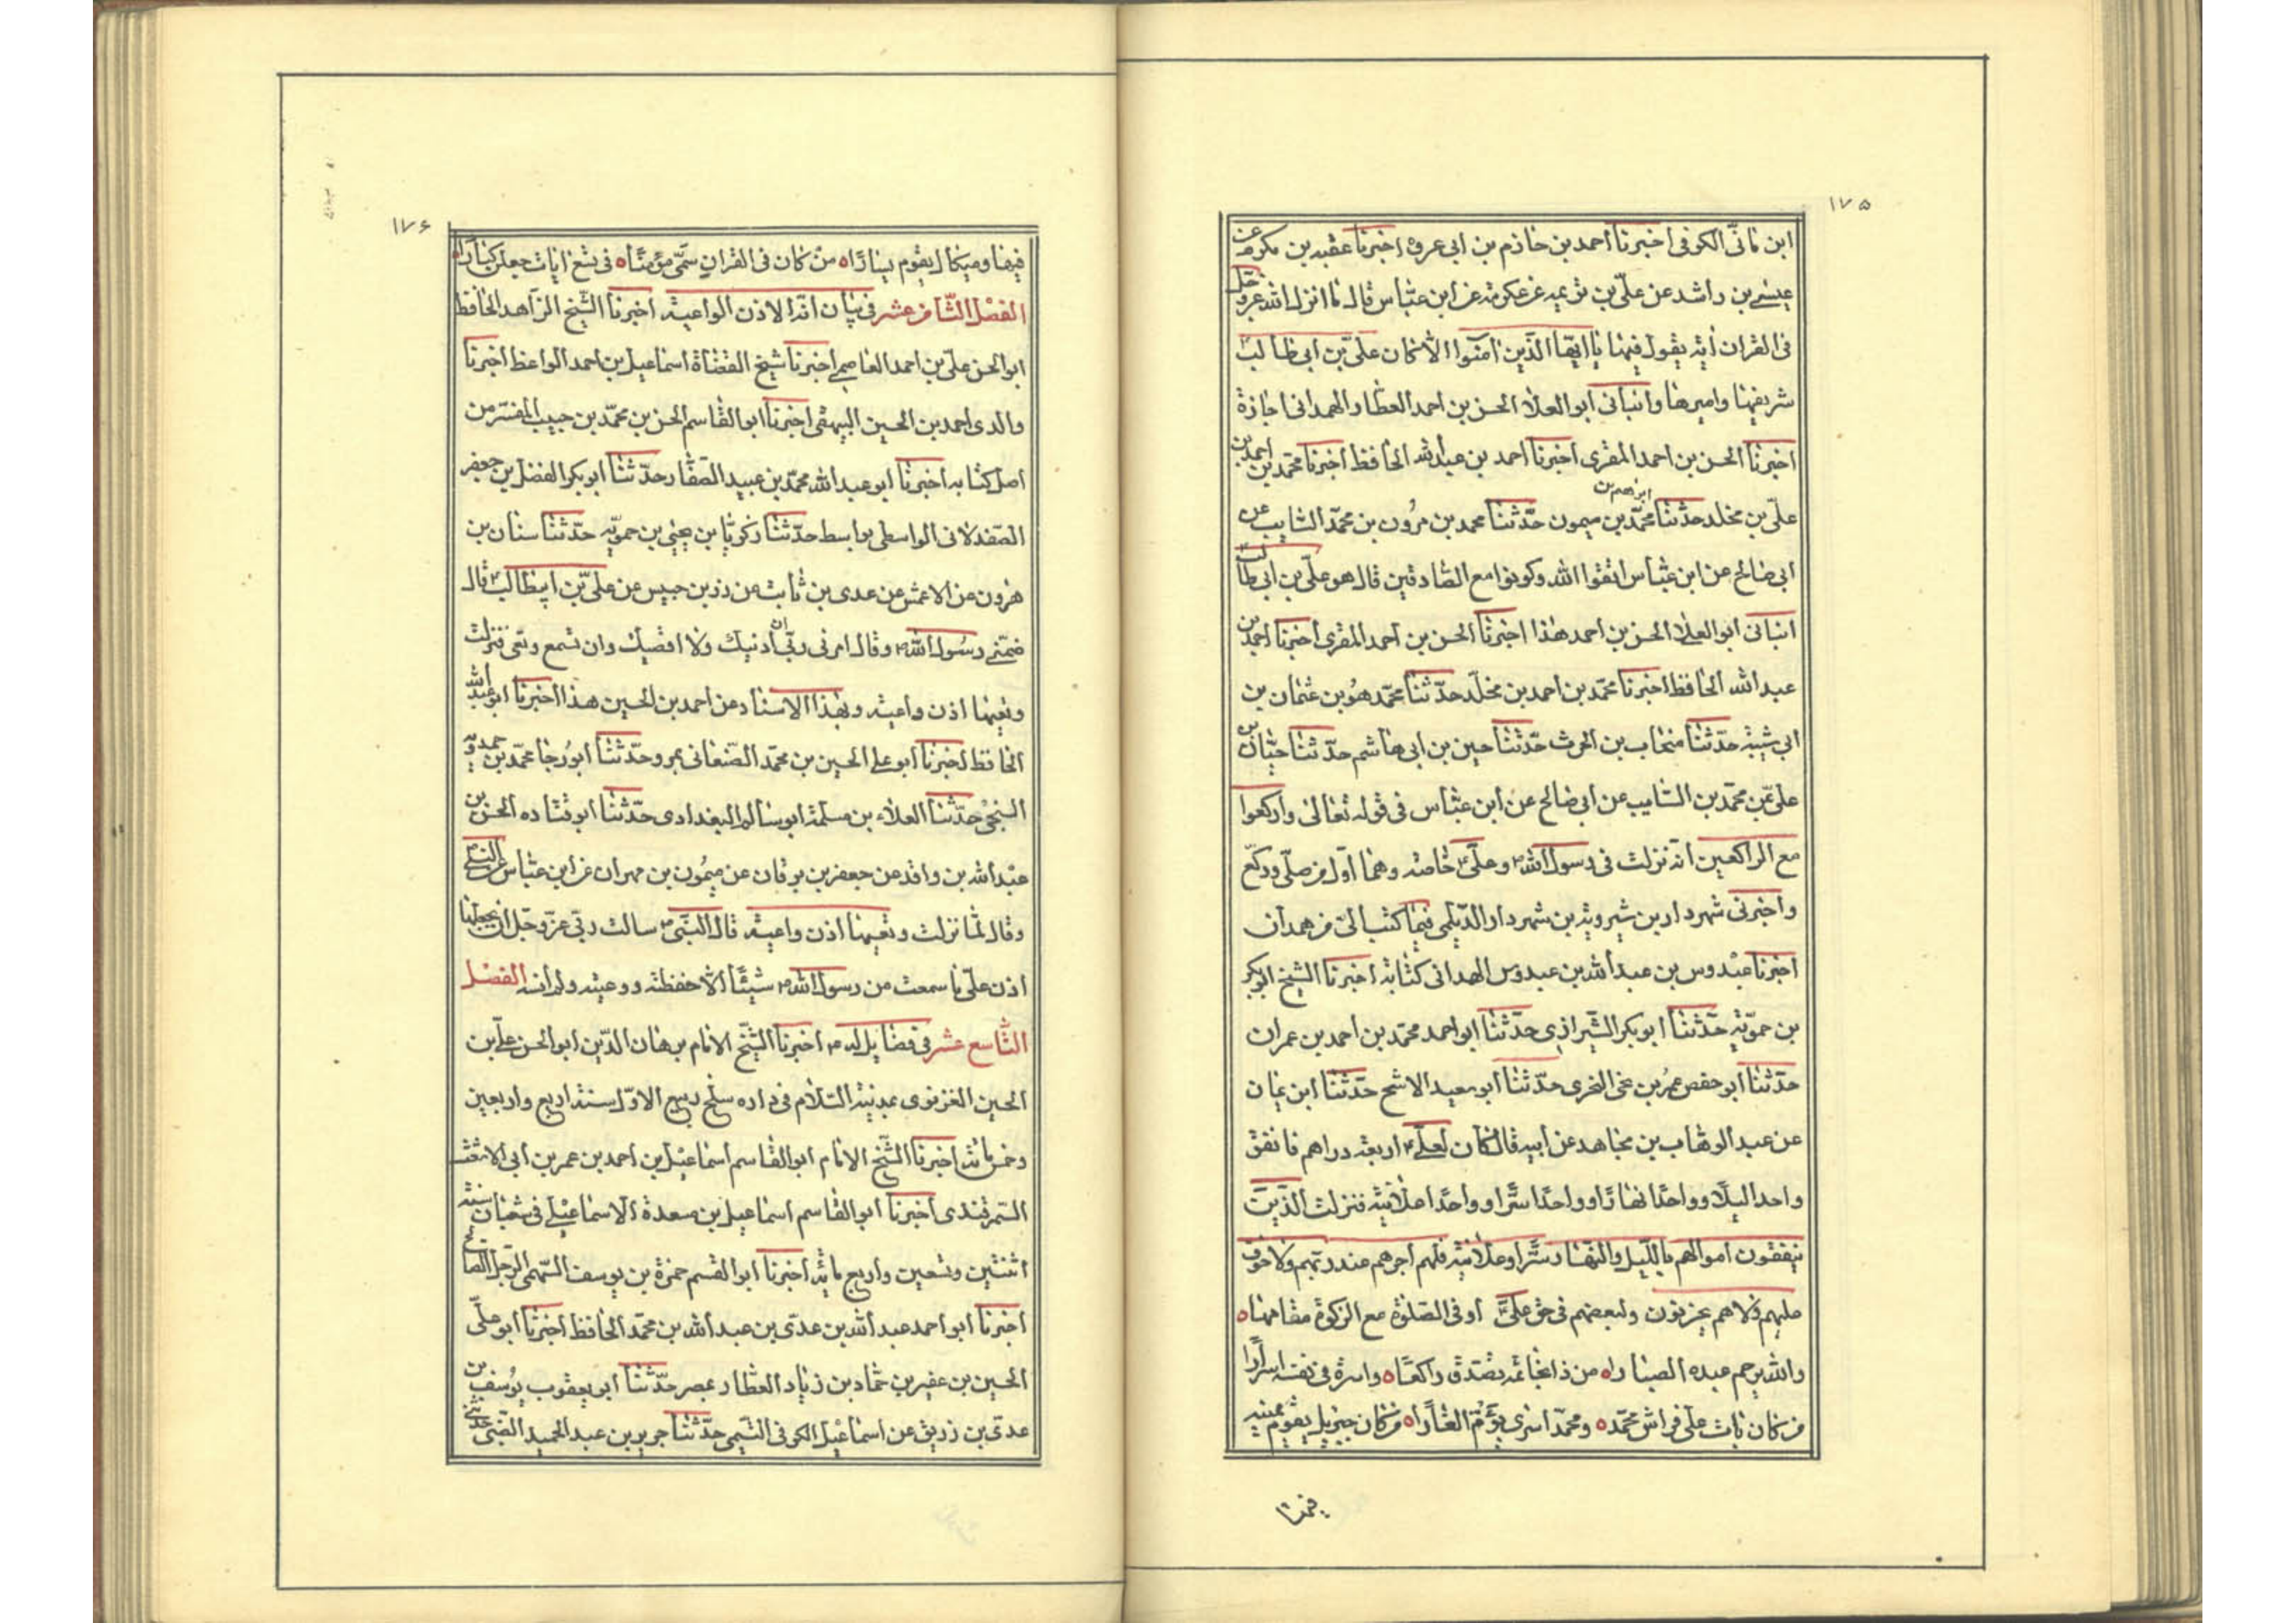 ١٧۵
ابن مانّى الكوفى اخبرنا احمد بن حازم بن ابى عروه اخبرنا عقبه بن مكرم عن
عيسى بن راشد عن علىّ بن بذيمه عن عكرمة عن ابن عبّاس قال ما انزل الله عزوجل
فى القران اية يقول فيها يا ايّها الّذين امنوا الا كان علىّ بن ابى طالب
شريفها واميرها وانبانى ابو العلا الحسن بن احمد العطّار الهمدانى اجازة
اخبرنا الحسن بن احمد المقرى اخبرنا احمد بن عبدالله الحافظ اخبرنا محمّد بن احمد بن
علىّ بن مخلد حدّثنا محمّد بن ابراهيم بن ميمون حدّثنا محمد بن مرون بن محمّد السّايب عن
ابى صالح عن ابن عبّاس اتقوا الله وكونوا مع الصّادقين قال هو علىّ بن ابى طالب
انبانى ابو العلا الحسن بن احمد هذا اخبرنا الحسن بن احمد المقرى اخبرنا احمد بن
عبد الله الحافظ اخبرنا محمّد بن احمد بن مخلّد حدّثنا محمّد هو بن عثمان بن
ابى شيبة حدّثنا منجاب بن الحرث حدّثنا حسين بن ابى هاشم حدّثنا حبّان بن
علىّ عن محمّد بن السّايب عن ابى صالح عن ابن عبّاس فى قوله تعالى واركعوا
مع الراكعين انه نزلت فى رسول الله ص وعلىّ ع خاصة وهما اوّل من صلّى وركع
واخبرنى شهردار بن شيرويه بن شهردار الدّيلمى فيما كتب الىّ من همدان
اخبرنا عبدوس بن عبدالله بن عبدوس الهمدانى كتابة اخبرنا الشيخ ابو بكر
بن حمويّه حدّثنا ابو بكر الشّيرازى حدّثنا ابو احمد محمّد بن احمد بن عمران
حدّثنا ابو حفص عمر بن محى النحرى حدّثنا ابو سعيد الاشج حدّثنا ابن يمان
عن عبد الوهّاب بن مجاهد عن ابيه قال كان لعلى ع اربعة دراهم فانفق
واحدا ليلا وواحدًا نهارًا وواحدًا سرًّا وواحدًا علانية فنزلت الّذين
ينفقون اموالهم باللّيل والنّهار سرًّا وعلانية فلهم اجرهم عند ربّهم ولا خوف
عليهم ولا هم يحزنون ولبعضهم فى حق علىّ ع اوفى الصّلوة مع الزكوة مقامها ه
والله يرحم عبده الصبّارا ه من ذا بخاتمه تصّدق راكعًا ه واسرة فى نفسه اسرارًا
من كان بات على فراش محمّد ه ومحمّد اسرى يؤمّ الغارا ه من كان جبريل يقوم يمينه
فيها
١٧۶
فيها وميكال يقوم يسارًا ه من كان فى القران سمّى مؤمنًا ه فى تسع ايات جعلن كبارًا ه
الفصل الثّامن عشر فى بيان انّه الاذن الواعية اخبرنا الشّيخ الزّاهد الحافظ
ابو الحسن علىّ بن احمد العاصمى اخبرنا شيخ القضاة اسماعيل بن احمد الواعظ اخبرنا
والدى احمد بن الحسين البيهقى اخبرنا ابو القاسم الحسن بن محمّد بن حبيب المفسّر من
اصل كتابه اخبرنا ابو عبد الله محمّد بن عبيد الصّفّار حدّثنا ابو بكر الفضل بن جعفر
الصّفدلانى الواسطى بواسط حدّثنا زكريّا بن يحيى بن حمويّه حدّثنا سنان بن
هرون عن الاعمش عن عدى بن ثابت عن زر بن حبيس عن علىّ بن ابيطالب ع قال
ضمّنى رسول الله ص وقال امرنى ربّى ان ادنيك ولا اقصيك وان تسمع وتعى فنزلت
وتعيها اذن واعية وبهذا الاسناد عن احمد بن الحسين هذا اخبرنا ابو عبد الله
الحافظ اخبرنا ابو على الحسين بن محمّد الصّنعانى بمرو حدّثنا ابو رجا محمّد بن حمدويه
السّنجى حدّثنا العلاء بن مسلمة ابو سالم البغدادى حدّثنا ابو قتاده الحسن بن
عبدالله بن واقد عن جعفر بن برقان عن ميمون بن مهران عن ابن عبّاس عن النّبى ص
وقال لمّا نزلت وتعيها اذن واعية قال النّبى ص سالت ربّى عزّوجلّ ان يجعلها
اذن علىّ ما سمعت من رسول الله ص شيئًا الّا حفظته ووعيته ولم انسه الفصل
التّاسع عشر فى فضايل له ع اخبرنا الشّيخ الامام برهان الدّين ابو الحسن علىّ بن
الحسين الغزنوى بمدينة السّلام فى داره سلخ ربيع الاوّل سنة اربع واربعين
وخمس مائة اخبرنا الشّيخ الامام ابو القاسم اسماعيل بن احمد بن عمر بن ابى الاشعث
السّمرقندى اخبرنا ابو القاسم اسماعيل بن مسعدة الاسماعيلى فى شعبان سنة
اثنتين وتسعين واربع مائة اخبرنا ابو القسم حمزة بن يوسف السّهمى الرّجل الصّالح
اخبرنا ابو احمد عبدالله بن عدّى بن عبدالله بن محمّد الحافظ اخبرنا ابو علىّ
الحسين بن عفير بن حمّاد بن زياد العطّار بمصر حدّثنا ابو يعقوب يوسف بن
عدىّ بن زريق عن اسماعيل الكوفى التّيمى حدّثنا جرير بن عبد الحميد الضّبّى حدّثنى